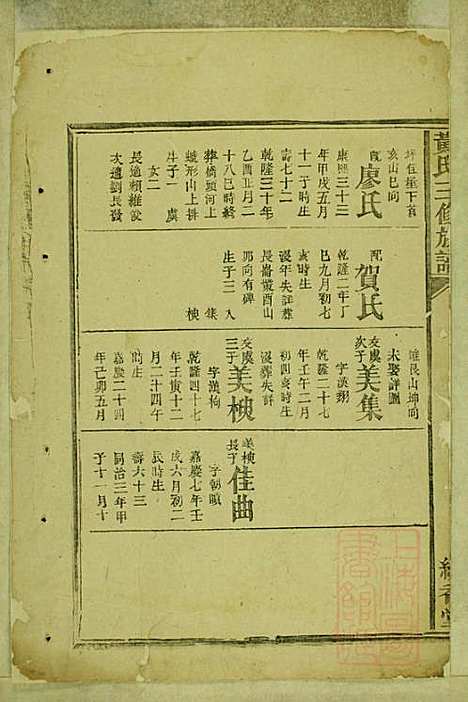 黄氏三修族譜
坪包堂下首
亥山巳向
配廖氏
康熙三十三
年甲戌五月
十一子時生
壽七十二
乾隆三十年
乙酉正月二
十八巳時終
葬橋頭河上
蛾形山上排
生子一 虞
女二
長適賴維
次適劉長發
配賀氏
乾隆二年丁
巳九月初七
亥時生
沒年失詳葬
長崙叢酉山
卯向有碑
生子三 入
集 楧
艮山坤向
未娶詳圖
交虞次子美集
字漢朔
乾隆二十七
年壬午二月
初四亥時生
沒葬失詳
交虞三子美楧
字漢枸
乾隆四十七
年壬寅十二
月二十四午
時生
嘉慶二十四
年己卯五月
美楧長子佳曲
字朝
嘉慶七年壬
戌六月初二
辰時生
壽六十三
同治三年甲
子十一月十